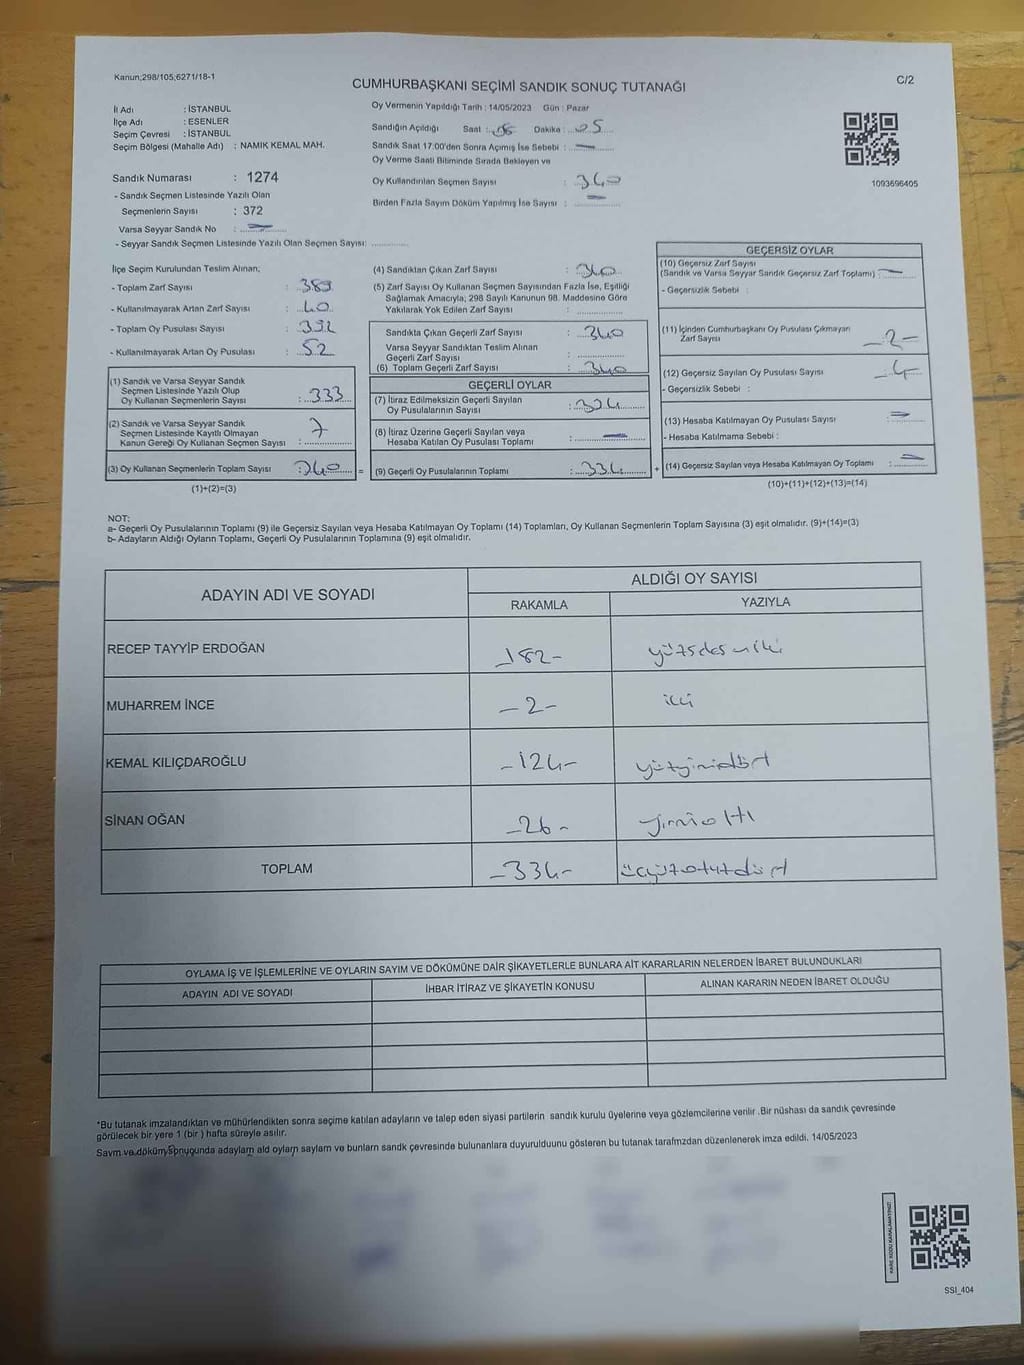 Kanun;298/105;6271/18-1
CUMHURBAŞKANI SEÇİMİ SANDIK SONUÇ TUTANAĞI
C/2
İl Adı : İSTANBUL
İlçe Adı : ESENLER
Seçim Çevresi : İSTANBUL
Seçim Bölgesi (Mahalle Adı) : NAMIK KEMAL MAH.
Sandık Numarası : 1274
- Sandık Seçmen Listesinde Yazılı Olan
Seçmenlerin Sayısı : 372
Varsa Seyyar Sandık No : —
- Seyyar Sandık Seçmen Listesinde Yazılı Olan Seçmen Sayısı: ............
Oy Vermenin Yapıldığı Tarih : 14/05/2023 Gün : Pazar
Sandığın Açıldığı Saat : Dakika : 05
Sandık Saat 17:00'den Sonra Açılmış İse Sebebi : —
Oy Verme Saati Bitiminde Sırada Bekleyen ve
Oy Kullandırılan Seçmen Sayısı : 340
Birden Fazla Sayım Döküm Yapılmış İse Sayısı : —
1093696405
İlçe Seçim Kurulundan Teslim Alınan;
- Toplam Zarf Sayısı : 389
- Kullanılmayarak Artan Zarf Sayısı : 40
- Toplam Oy Pusulası Sayısı : 392
- Kullanılmayarak Artan Oy Pusulası : 52
(1) Sandık ve Varsa Seyyar Sandık
Seçmen Listesinde Yazılı Olup
Oy Kullanan Seçmenlerin Sayısı : 333
(2) Sandık ve Varsa Seyyar Sandık
Seçmen Listesinde Kayıtlı Olmayan
Kanun Gereği Oy Kullanan Seçmen Sayısı : 7
(3) Oy Kullanan Seçmenlerin Toplam Sayısı : 340 =
(1)+(2)=(3)
(4) Sandıktan Çıkan Zarf Sayısı : 340
(5) Zarf Sayısı Oy Kullanan Seçmen Sayısından Fazla İse, Eşitliği
Sağlamak Amacıyla; 298 Sayılı Kanunun 98. Maddesine Göre
Yakılarak Yok Edilen Zarf Sayısı : ............
Sandıkta Çıkan Geçerli Zarf Sayısı : 340
Varsa Seyyar Sandıktan Teslim Alınan
Geçerli Zarf Sayısı : ............
(6) Toplam Geçerli Zarf Sayısı : 340
GEÇERLİ OYLAR
(7) İtiraz Edilmeksizin Geçerli Sayılan
Oy Pusulalarının Sayısı : 334
(8) İtiraz Üzerine Geçerli Sayılan veya
Hesaba Katılan Oy Pusulası Toplamı : —
(9) Geçerli Oy Pusulalarının Toplamı : 334 +
GEÇERSİZ OYLAR
(10) Geçersiz Zarf Sayısı
(Sandık ve Varsa Seyyar Sandık Geçersiz Zarf Toplamı) : —
- Geçersizlik Sebebi :
(11) İçinden Cumhurbaşkanı Oy Pusulası Çıkmayan
Zarf Sayısı -2-
(12) Geçersiz Sayılan Oy Pusulası Sayısı -4-
- Geçersizlik Sebebi :
(13) Hesaba Katılmayan Oy Pusulası Sayısı : —
- Hesaba Katılmama Sebebi :
(14) Geçersiz Sayılan veya Hesaba Katılmayan Oy Toplamı : —
(10)+(11)+(12)+(13)=(14)
NOT:
a- Geçerli Oy Pusulalarının Toplamı (9) ile Geçersiz Sayılan veya Hesaba Katılmayan Oy Toplamı (14) Toplamları, Oy Kullanan Seçmenlerin Toplam Sayısına (3) eşit olmalıdır. (9)+(14)=(3)
b- Adayların Aldığı Oyların Toplamı, Geçerli Oy Pusulalarının Toplamına (9) eşit olmalıdır.
ADAYIN ADI VE SOYADI ALDIĞI OY SAYISI
RAKAMLA YAZIYLA
RECEP TAYYİP ERDOĞAN -182- yüzsekseniki
MUHARREM İNCE -2- iki
KEMAL KILIÇDAROĞLU -124- yüzyirmidört
SİNAN OĞAN -26- yirmialtı
TOPLAM -334- üçyüzotuzdört
OYLAMA İŞ VE İŞLEMLERİNE VE OYLARIN SAYIM VE DÖKÜMÜNE DAİR ŞİKAYETLERLE BUNLARA AİT KARARLARIN NELERDEN İBARET BULUNDUKLARI
ADAYIN ADI VE SOYADI İHBAR İTİRAZ VE ŞİKAYETİN KONUSU ALINAN KARARIN NEDEN İBARET OLDUĞU
*Bu tutanak imzalandıktan ve mühürlendikten sonra seçime katılan adayların ve talep eden siyasi partilerin sandık kurulu üyelerine veya gözlemcilerine verilir .Bir nüshası da sandık çevresinde
görülecek bir yere 1 (bir ) hafta süreyle asılır.
Saym ve döküm sonuçunda adaylam ald oylam saylam ve bunlarn sandk çevresinde bulunanlara duyurulduunu gösteren bu tutanak tarafmzdan düzenlenerek imza edildi. 14/05/2023
KARE KODU KARALAMAYINIZ!
SSI_404